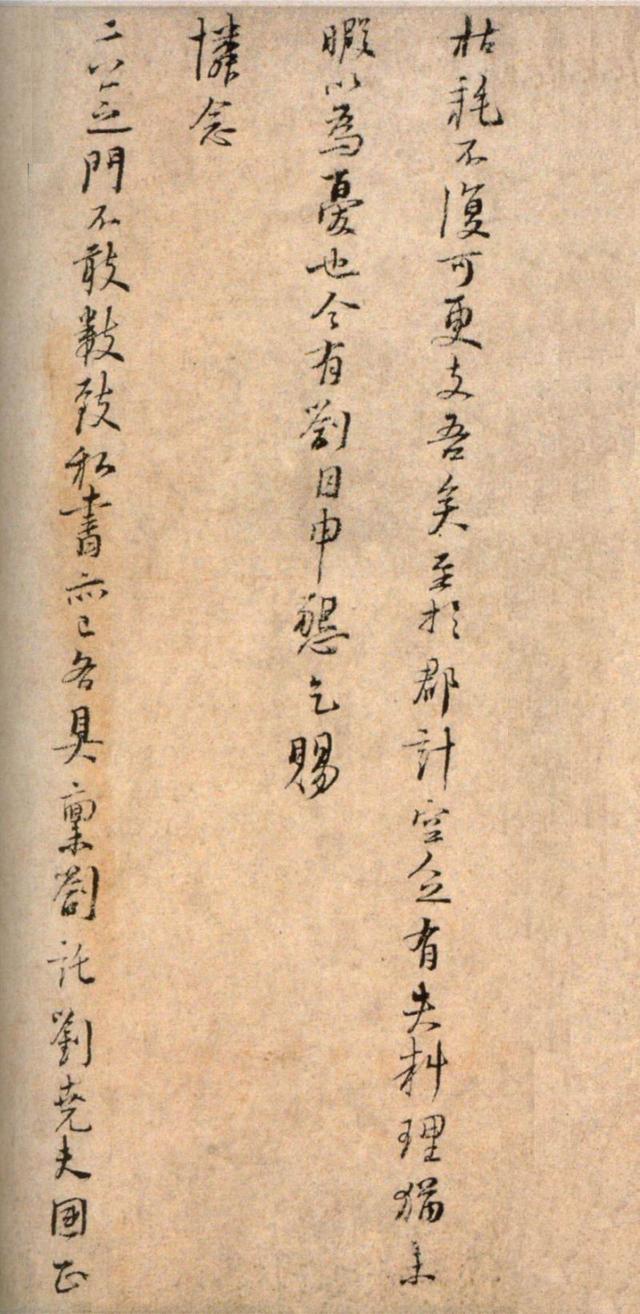 枯耗不復可更支吾矣至於郡計空乏有失料理猶未
暇以為憂也今有劄目申懇乞賜
憐念
二公之門不敢數致私書亦已各具稟劄託劉堯夫國正